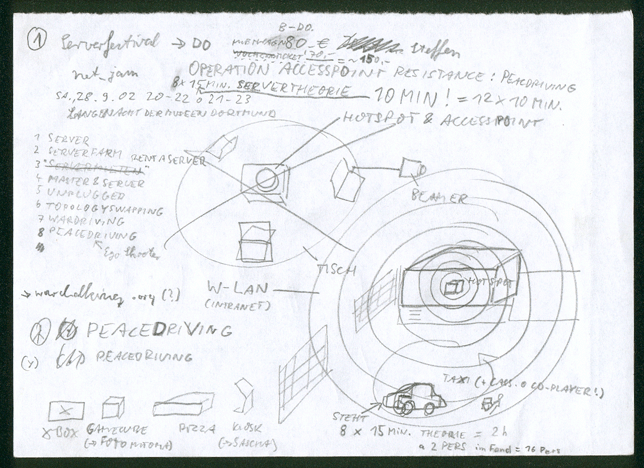 B-DO.
① Serverfestival → DO
80,-€
treffen
~150,-
net-jam
OPERATION ACCESSPOINT RESISTANCE: PEACEDRIVING
8 x 15 MIN. SERVERTHEORIE 10 MIN! = 12 x 10 MIN.
SA., 28.9.02 20-22 o 21-23
LANGE NACHT DER MUSEEN DORTMUND
HOTSPOT & ACCESSPOINT
1 SERVER
2 SERVERFARM RENT A SERVER
3 "SERVERMIETEN"
4 MASTER & SERVER
5 UNPLUGGED
6 TOPOLOGYSWAPPING
7 WARDRIVING
8 PEACEDRIVING
Ego shooter
BEAMER
TISCH
W-LAN
(INTRANET)
HOTSPOT
→ warchalking.org (?)
② PEACEDRIVING
PEACEDRIVING
TAXI (+ CASS. o CD-PLAYER!)
STEHT
XBOX GAMECUBE PIZZA KIOSK
(→ SASCHA)
8 x 15 MIN. THEORIE = 2h
a 2 PERS im Fond = 16 Pers